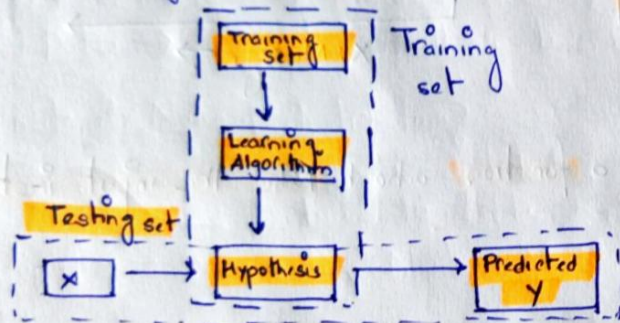 Training
set
Training
set
Learning
Algorithm
Testing set
x
Hypothesis
Predicted
y